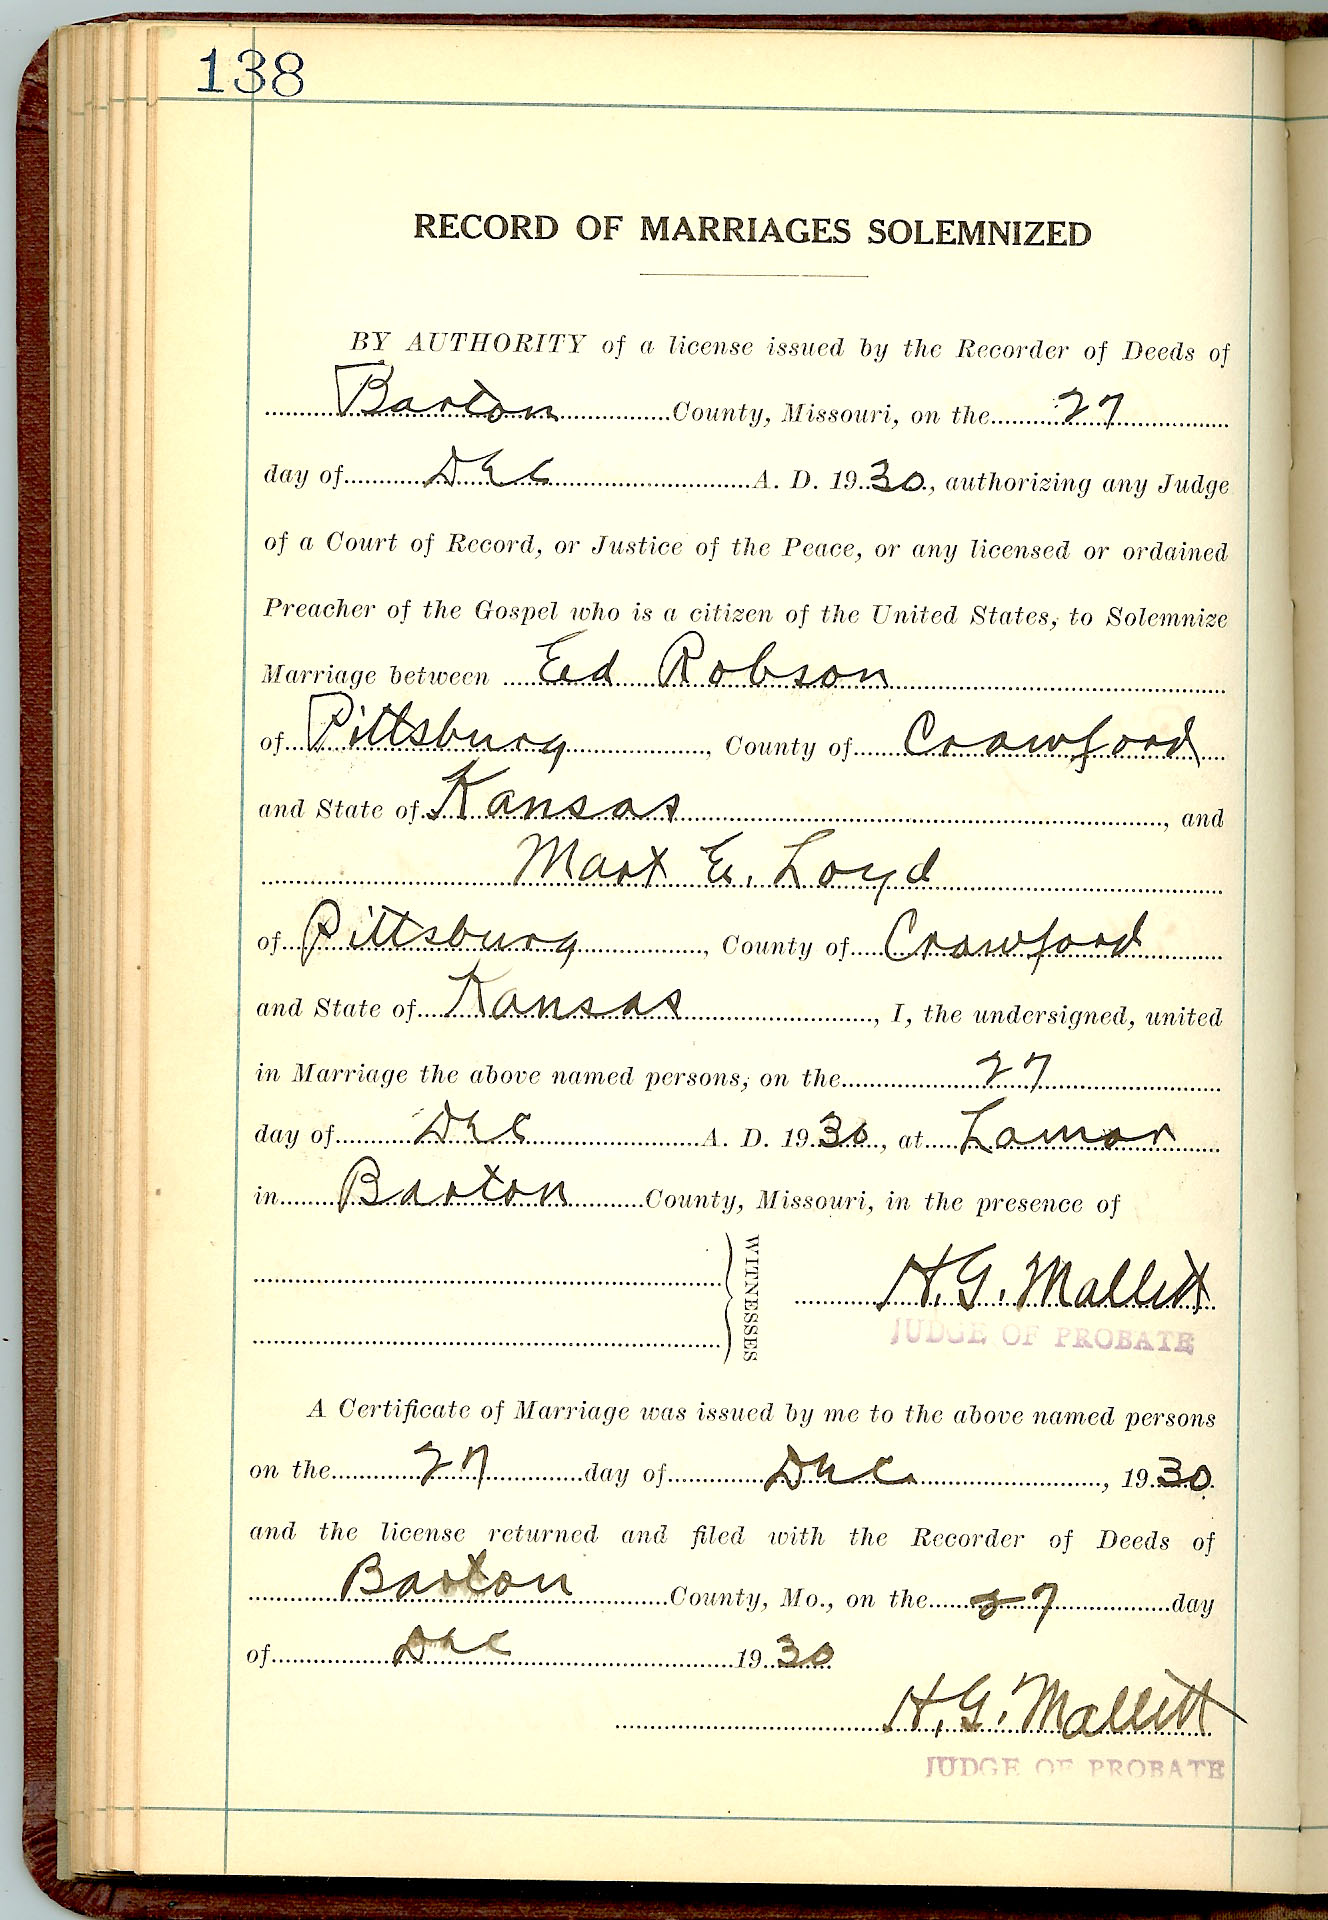 138
RECORD OF MARRIAGES SOLEMNIZED
BY AUTHORITY of a license issued by the Recorder of Deeds of
Barton County, Missouri, on the 27
day of Dec A. D. 1930, authorizing any Judge
of a Court of Record, or Justice of the Peace, or any licensed or ordained
Preacher of the Gospel who is a citizen of the United States, to Solemnize
Marriage between Ed Robson
of Pittsburg, County of Crawford
and State of Kansas, and
Mart E. Loyd
of Pittsburg, County of Crawford
and State of Kansas, I, the undersigned, united
in Marriage the above named persons, on the 27
day of Dec A. D. 1930, at Lamar
in Barton County, Missouri, in the presence of
WITNESSES
H. G. Mallett
JUDGE OF PROBATE
A Certificate of Marriage was issued by me to the above named persons
on the 27 day of Dec, 1930
and the license returned and filed with the Recorder of Deeds of
Barton County, Mo., on the 27 day
of Dec 1930
H. G. Mallett
JUDGE OF PROBATE